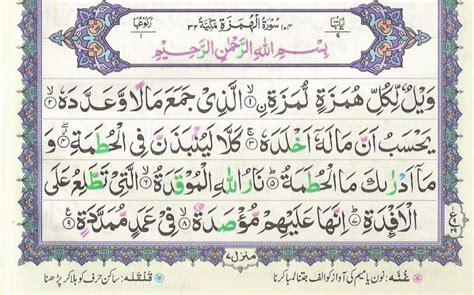 اٰیَاتُهَا ٩ ١٠٤ سُوْرَةُ الْهُمَزَةِ مَكِّیَّةٌ ٣٢ رُكُوْعُهَا ١
بِسْمِ اللّٰهِ الرَّحْمٰنِ الرَّحِیْمِ
وَیْلٌ لِّكُلِّ هُمَزَةٍ لُّمَزَةِ ۙ﴿١﴾ اۨلَّذِیْ جَمَعَ مَالًا وَّعَدَّدَهٗ ۙ﴿٢﴾
یَحْسَبُ اَنَّ مَالَهٗۤ اَخْلَدَهٗ ۚ﴿٣﴾ كَلَّا لَیُنْۢبَذَنَّ فِی الْحُطَمَةِ ۖ﴿٤﴾ وَ
مَاۤ اَدْرٰىكَ مَا الْحُطَمَةُ ؕ﴿٥﴾ نَارُ اللّٰهِ الْمُوْقَدَةُ ۙ﴿٦﴾ الَّتِیْ تَطَّلِعُ عَلَی
الْاَفْـِٕدَةِ ؕ﴿٧﴾ اِنَّهَا عَلَیْهِمْ مُّؤْصَدَةٌ ۙ﴿٨﴾ فِیْ عَمَدٍ مُّمَدَّدَةٍ ﴿٩﴾
منزل ٧
غُنَّہ: نون یا میم کی آواز کو الف جتنا لمبا کرنا قَلْقَلَہ: ساکن حرف کو ہلا کر پڑھنا